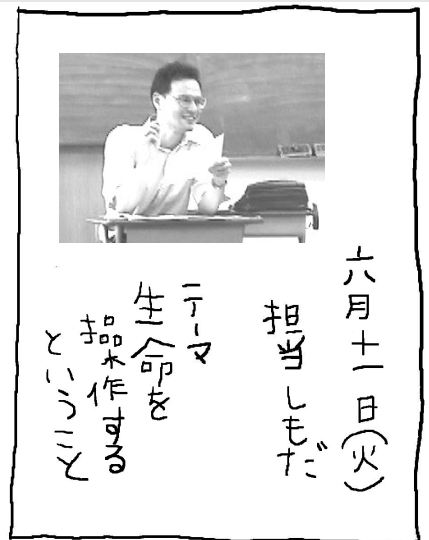 六月十一日(火)
担当 しもだ
テーマ
生命を
操作する
ということ